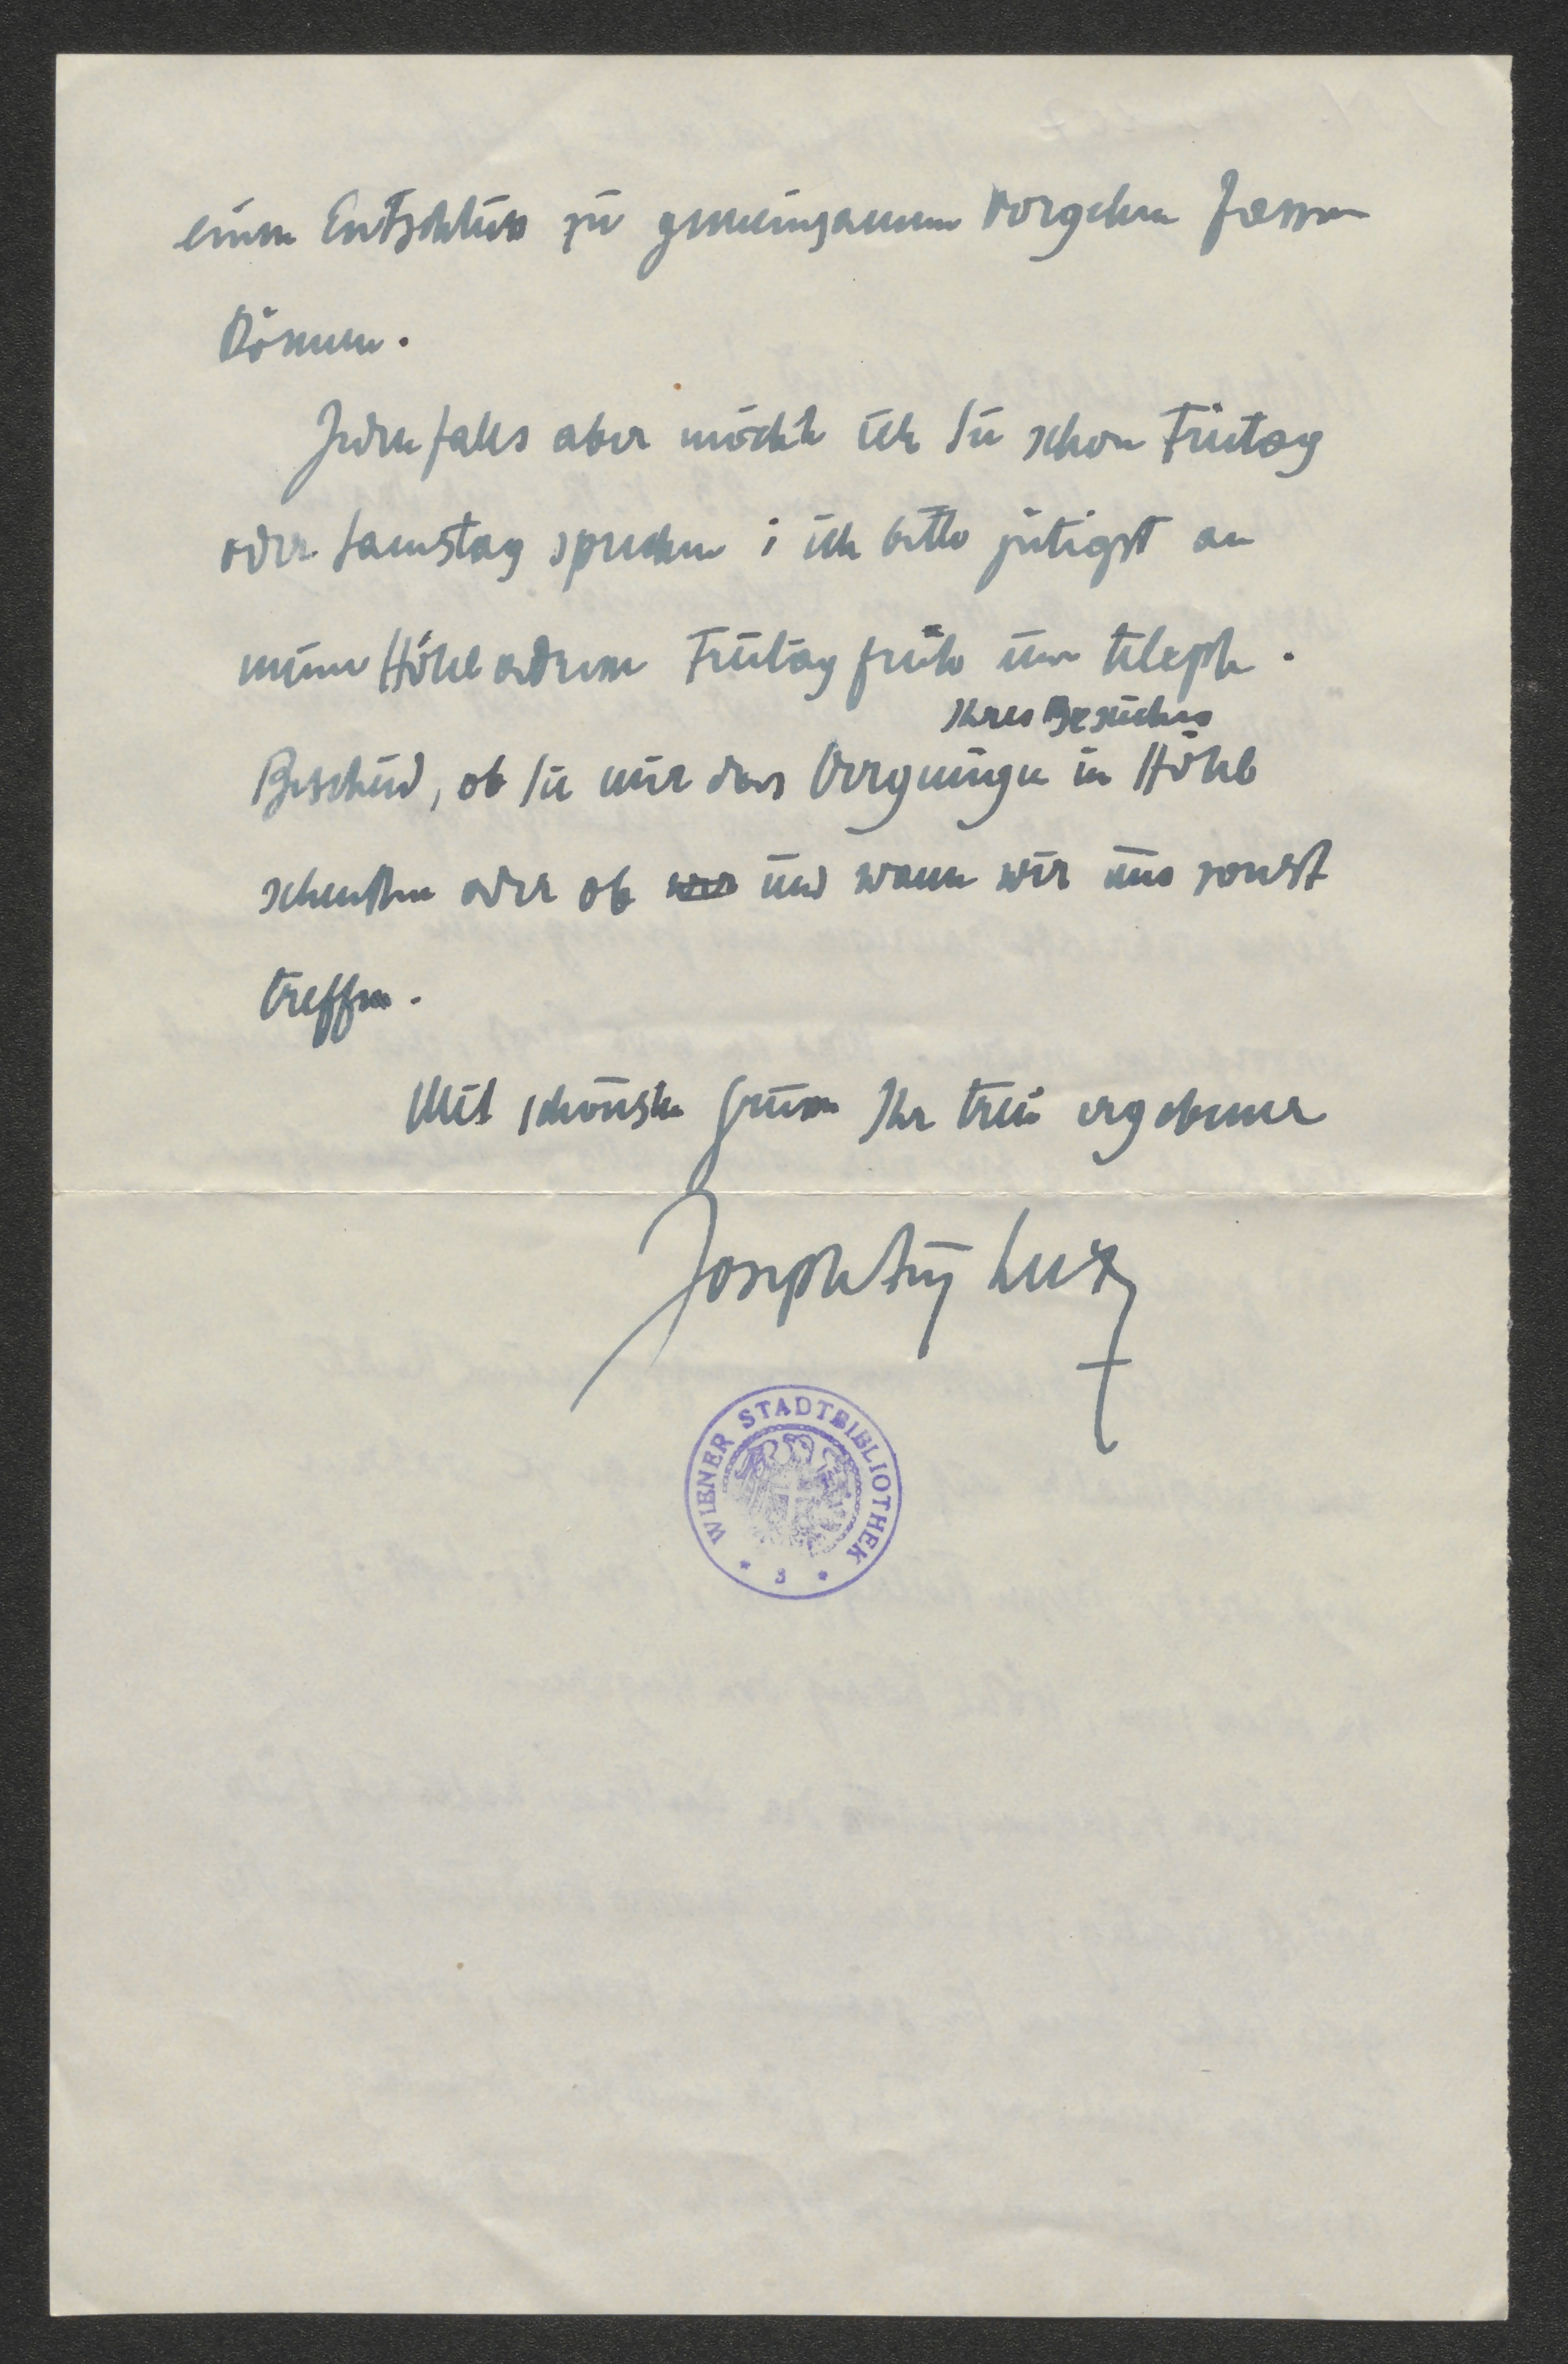 einen Entschluss zu gemeinsamem Vorgehen fassen
können.
Jedenfalls aber möchte ich Sie schon Freitag
oder Samstag sprechen; ich bitte gütigst an
meine Hôteladresse Freitag früh um teleph.
Ihres Besuches
Bescheid, ob Sie mir das Vergnügen im Hôtel
schenken oder ob wir und wann wir uns sonst
treffen.
Mit schönsten Grüssen Ihr treu ergebener
Joseph Aug Lux
WIENER STADTBIBLIOTHEK
* 3 *